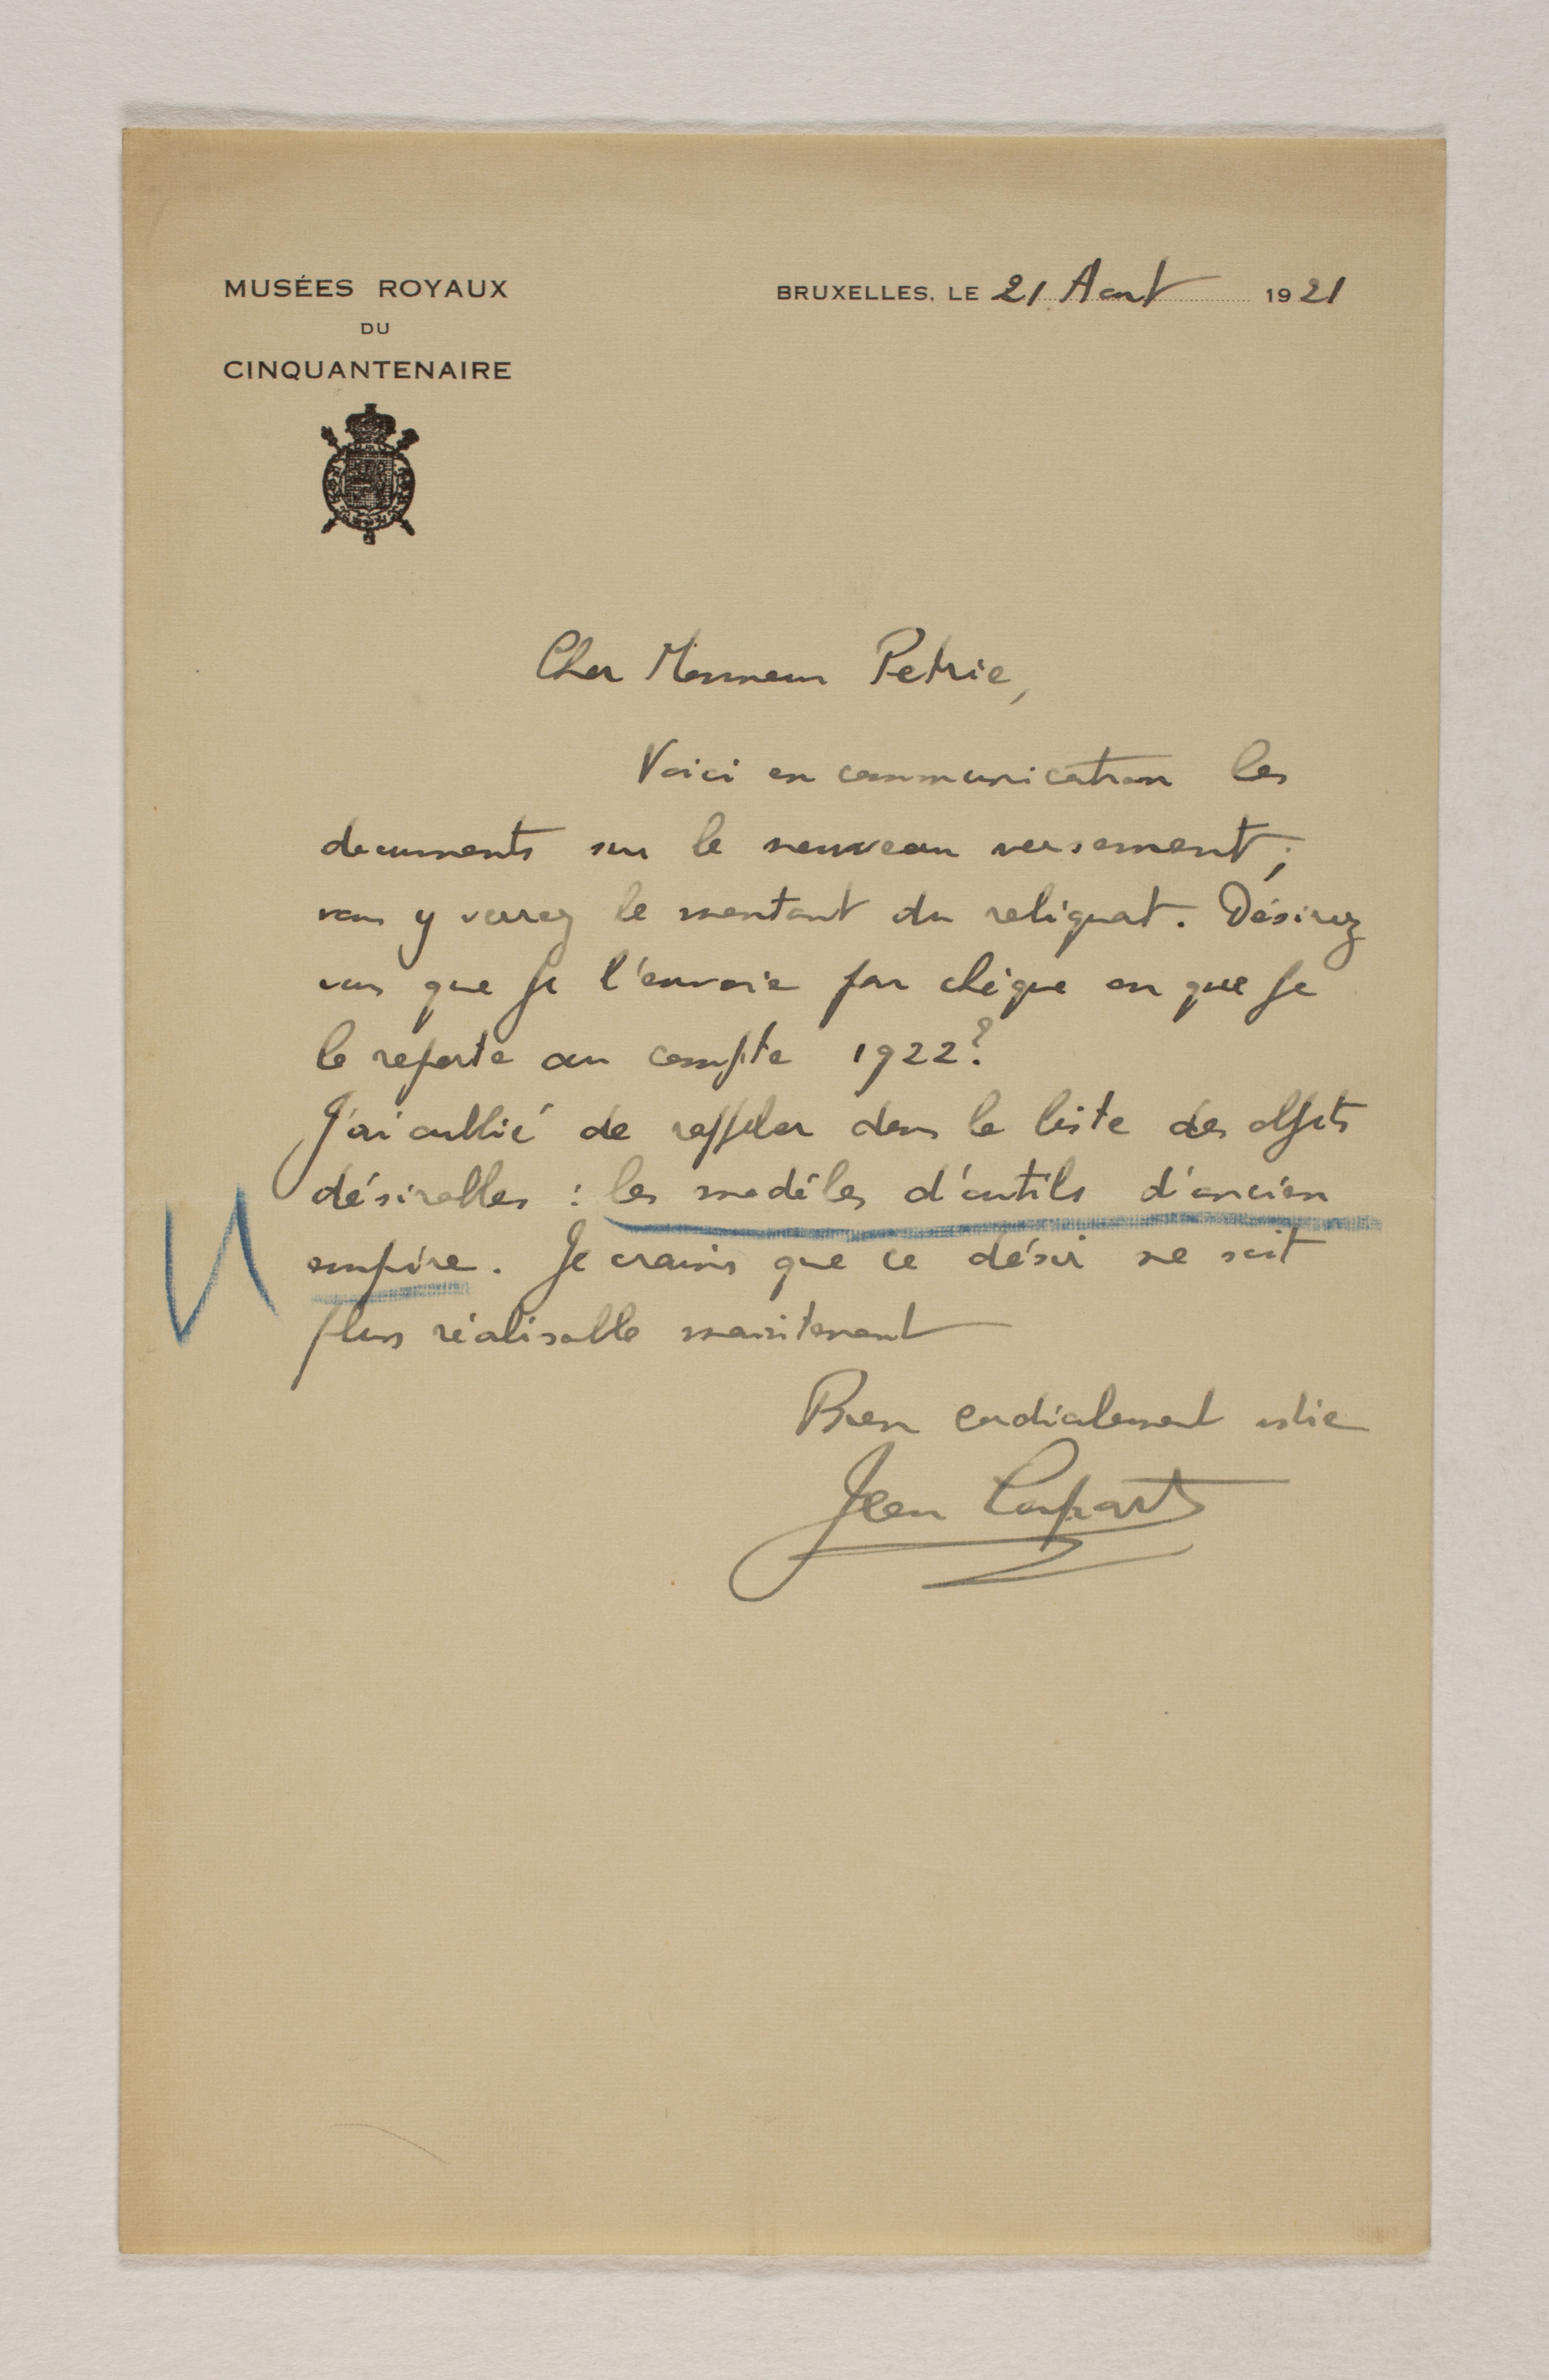 MUSÉES ROYAUX
DU
CINQUANTENAIRE
BRUXELLES, LE 21 Aout 1921
Cher Monsieur Petrie,
Voici en communication les
documents sur le nouveau versement;
vous y verrez le montant du reliquat. Désirez
vous que je l'envoie par chèque ou que je
le reporte au compte 1922?
J'ai oublié de rappeler dans la liste des objets
désirables : les modèles d'outils d'ancien
empire. Je crains que ce désir ne soit
plus réalisable maintenant
Bien cordialement votre
Jean Capart